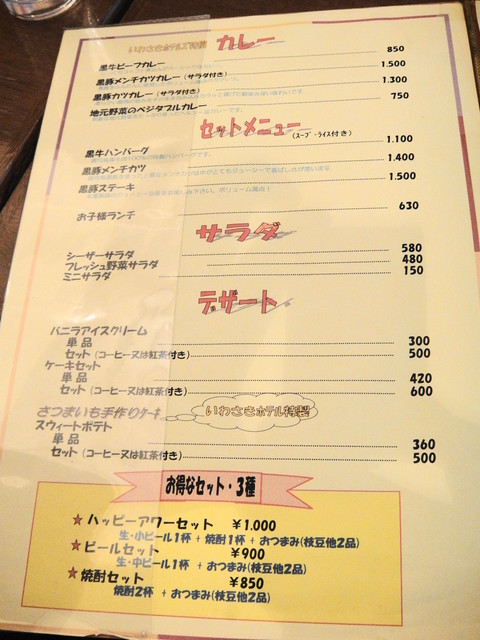 いわさきホテルズ特製 カレー
黒牛ビーフカレー 850
黒豚メンチカツカレー (サラダ付き) 1.500
黒豚カツカレー (サラダ付き) 1.300
地元野菜のベジタブルカレー 750
セットメニュー (スープ・ライス付き)
黒牛ハンバーグ 1.100
黒豚メンチカツ 1.400
黒豚ステーキ 1.500
お子様ランチ 630
サラダ
シーザーサラダ 580
フレッシュ野菜サラダ 480
ミニサラダ 150
デザート
バニラアイスクリーム
単品 300
セット (コーヒー又は紅茶付き) 500
ケーキセット
単品 420
セット (コーヒー又は紅茶付き) 600
さつまいも手作りケーキ いわさきホテル特製
スウィートポテト
単品 360
セット (コーヒー又は紅茶付き) 500
お得なセット・3種
★ハッピーアワーセット ¥1.000
生・小ビール1杯 + 焼酎1杯 + おつまみ(枝豆他2品)
★ビールセット ¥900
生・中ビール1杯 + おつまみ(枝豆他2品)
★焼酎セット ¥850
焼酎2杯 + おつまみ(枝豆他2品)